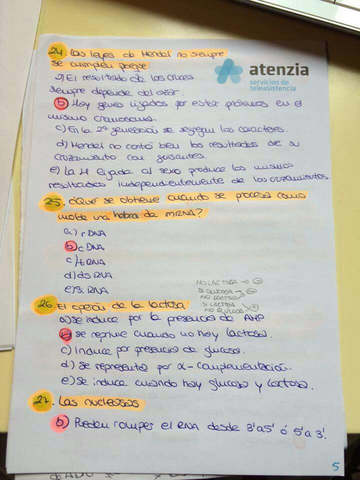 24. Las leyes de Mendel no siempre
se cumplen porque
atenzia
servicios de
teleasistencia
a) El resultado de los cruces
siempre depende del azar.
b) Hay genes ligados por estar próximos en el
mismo cromosoma.
c) En la 2ª generación se segregan los caracteres.
d) Mendel no contó bien los resultados de su
cruzamiento con guisantes.
e) La H ligada al sexo produce los mismos
resultados independientemente de los cruzamientos.
25. ¿Qué se obtiene cuando se procesa como
molde una hebra de mRNA?
a) rDNA
b) cDNA
c) tRNA
d) ds RNA
e)
NO LACTOSA
SI GLUCOSA
NO LACTOSA
SI LACTOSA
NO GLUCOSA
26. El operón de la lactosa
a) se induce por la presencia de AMP
b) se reprime cuando no hay lactosa.
c) Induce por presencia de glucosa.
d) se representa por α-complementación.
e) Se induce cuando hay glucosa y lactosa.
27. Las nucleasas
b) Pueden romper el RNA desde 3'a5' ó 5'a 3'.
5